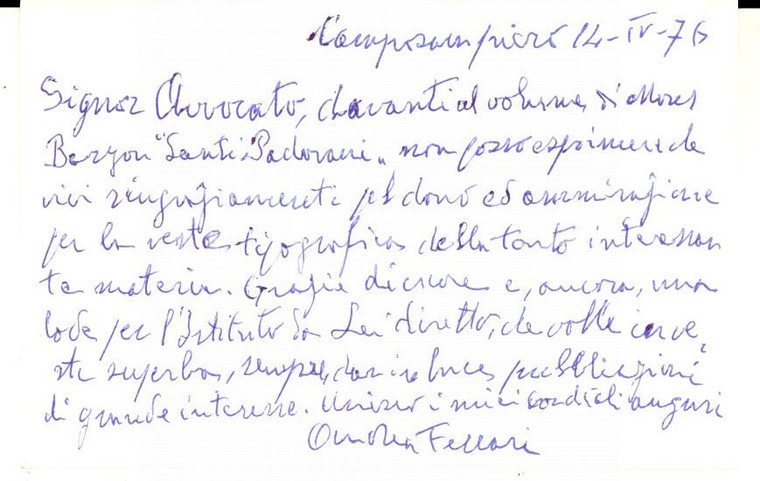 Camposampiero 14-IV-76
Signor Avvocato, davanti al volume di Mons
"Santi Padovani" non posso esprimere che
vivi ringraziamenti pel dono ed ammirazione
per la veste tipografica della tanto interessan
te materia. Grazie di cuore e, ancora, una
lode per l'Istituto da Lei diretto, che volle in ve
ste superba, sempre, dar in luce, pubblicazioni
di grande interesse. Unisco i miei cordiali auguri
Ferrari